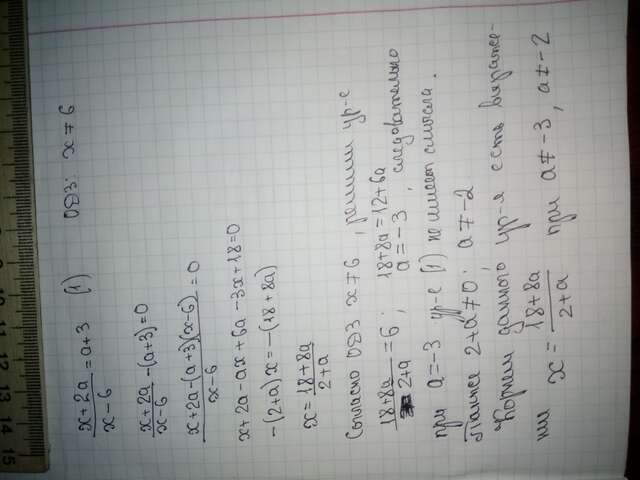 (x+2a)/(x-6) = a+3 (1) ОДЗ: x ≠ 6
(x+2a)/(x-6) -(a+3)=0
(x+2a-(a+3)(x-6))/(x-6) = 0
x+2a-ax+6a-3x+18=0
-(2+a)x=-(18+8a)
x=(18+8a)/(2+a)
Согласно ОДЗ x≠6, решим ур-е
(18+8a)/(2+a)=6; 18+8a=12+6a
a=-3, следовательно
при a=-3 ур-е (1) не имеет смысла.
Также 2+a≠0; a≠-2
Корнем данного ур-я есть выраже-
ния x = (18+8a)/(2+a) при a≠-3, a≠-2